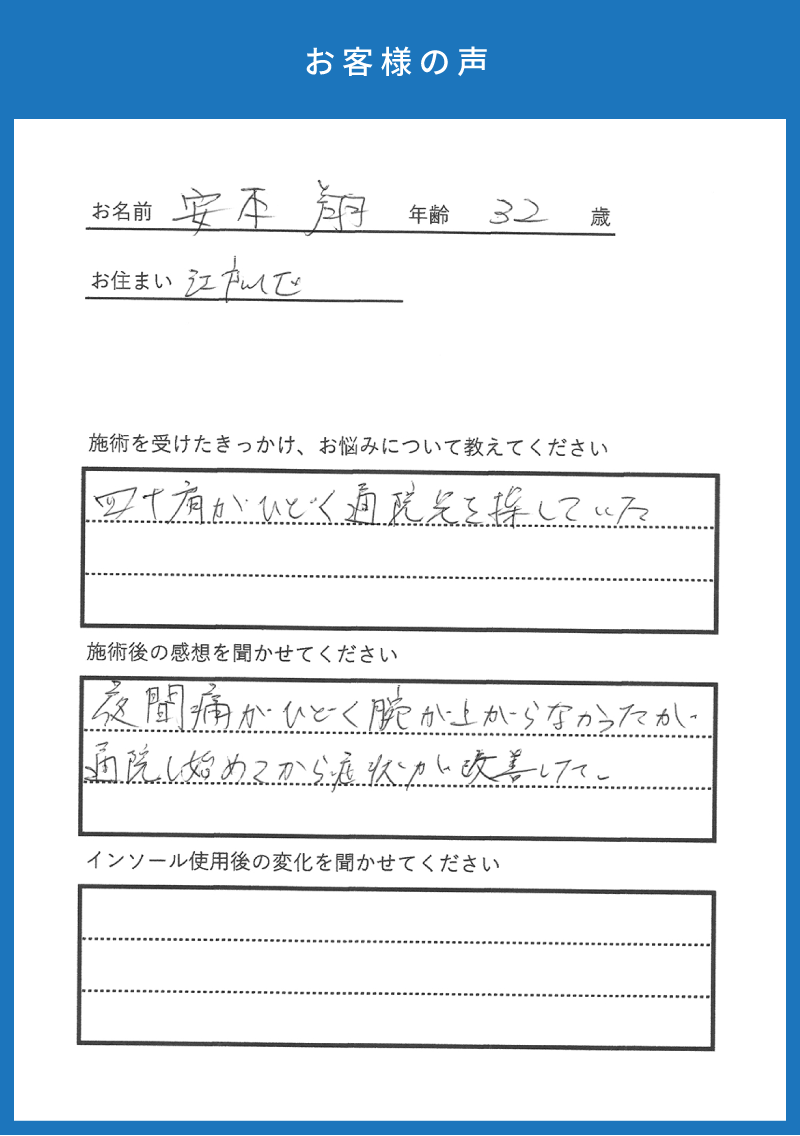 お客様の声
お名前 安本 翔 年齢 32 歳
お住まい 江戸川区
施術を受けたきっかけ、お悩みについて教えてください
四十肩がひどく通院先を探していた
施術後の感想を聞かせてください
夜間痛がひどく腕が上がらなかったが
通院し始めてから症状が改善した。
インソール使用後の変化を聞かせてください